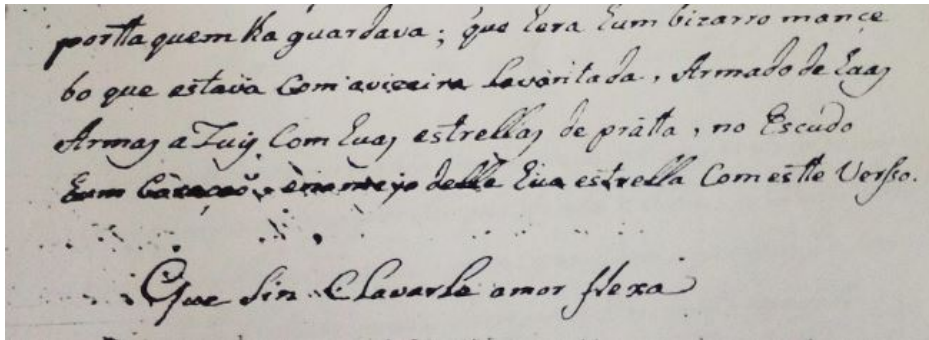 portta quem ha guardava; que hera hum bizarro mance
bo que estava Com aviceira levantada, Armado de huas
Armas a Zuis Com huas estrellas de pratta, no Escudo
hum Coracaõ, e no meyo delle hua estrella Com estte Versso.
Que sin Clavarle amor flexa